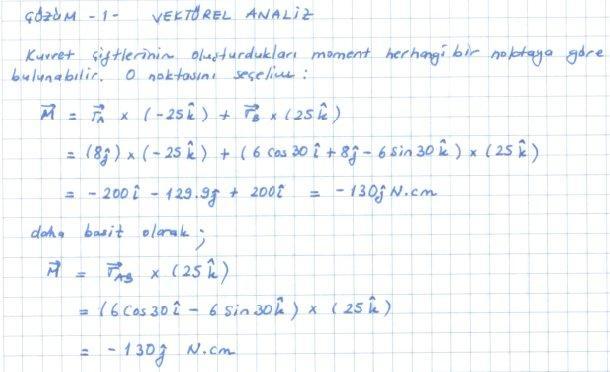 ÇÖZÜM -1- VEKTÖREL ANALİZ
Kuvvet çiftlerinin oluşturdukları moment herhangi bir noktaya göre
bulunabilir. O noktasını seçelim :
M⃗ = r⃗_A × (-25 k̂) + r⃗_B × (25 k̂)
= (8ĵ) × (-25 k̂) + (6 cos 30 î + 8ĵ - 6 sin 30 k̂) × (25 k̂)
= -200 î - 129.9ĵ + 200î = -130ĵ N.cm
daha basit olarak ;
M⃗ = r⃗_AB × (25 k̂)
= (6 cos 30 î - 6 sin 30 k̂) × (25 k̂)
= -130ĵ N.cm